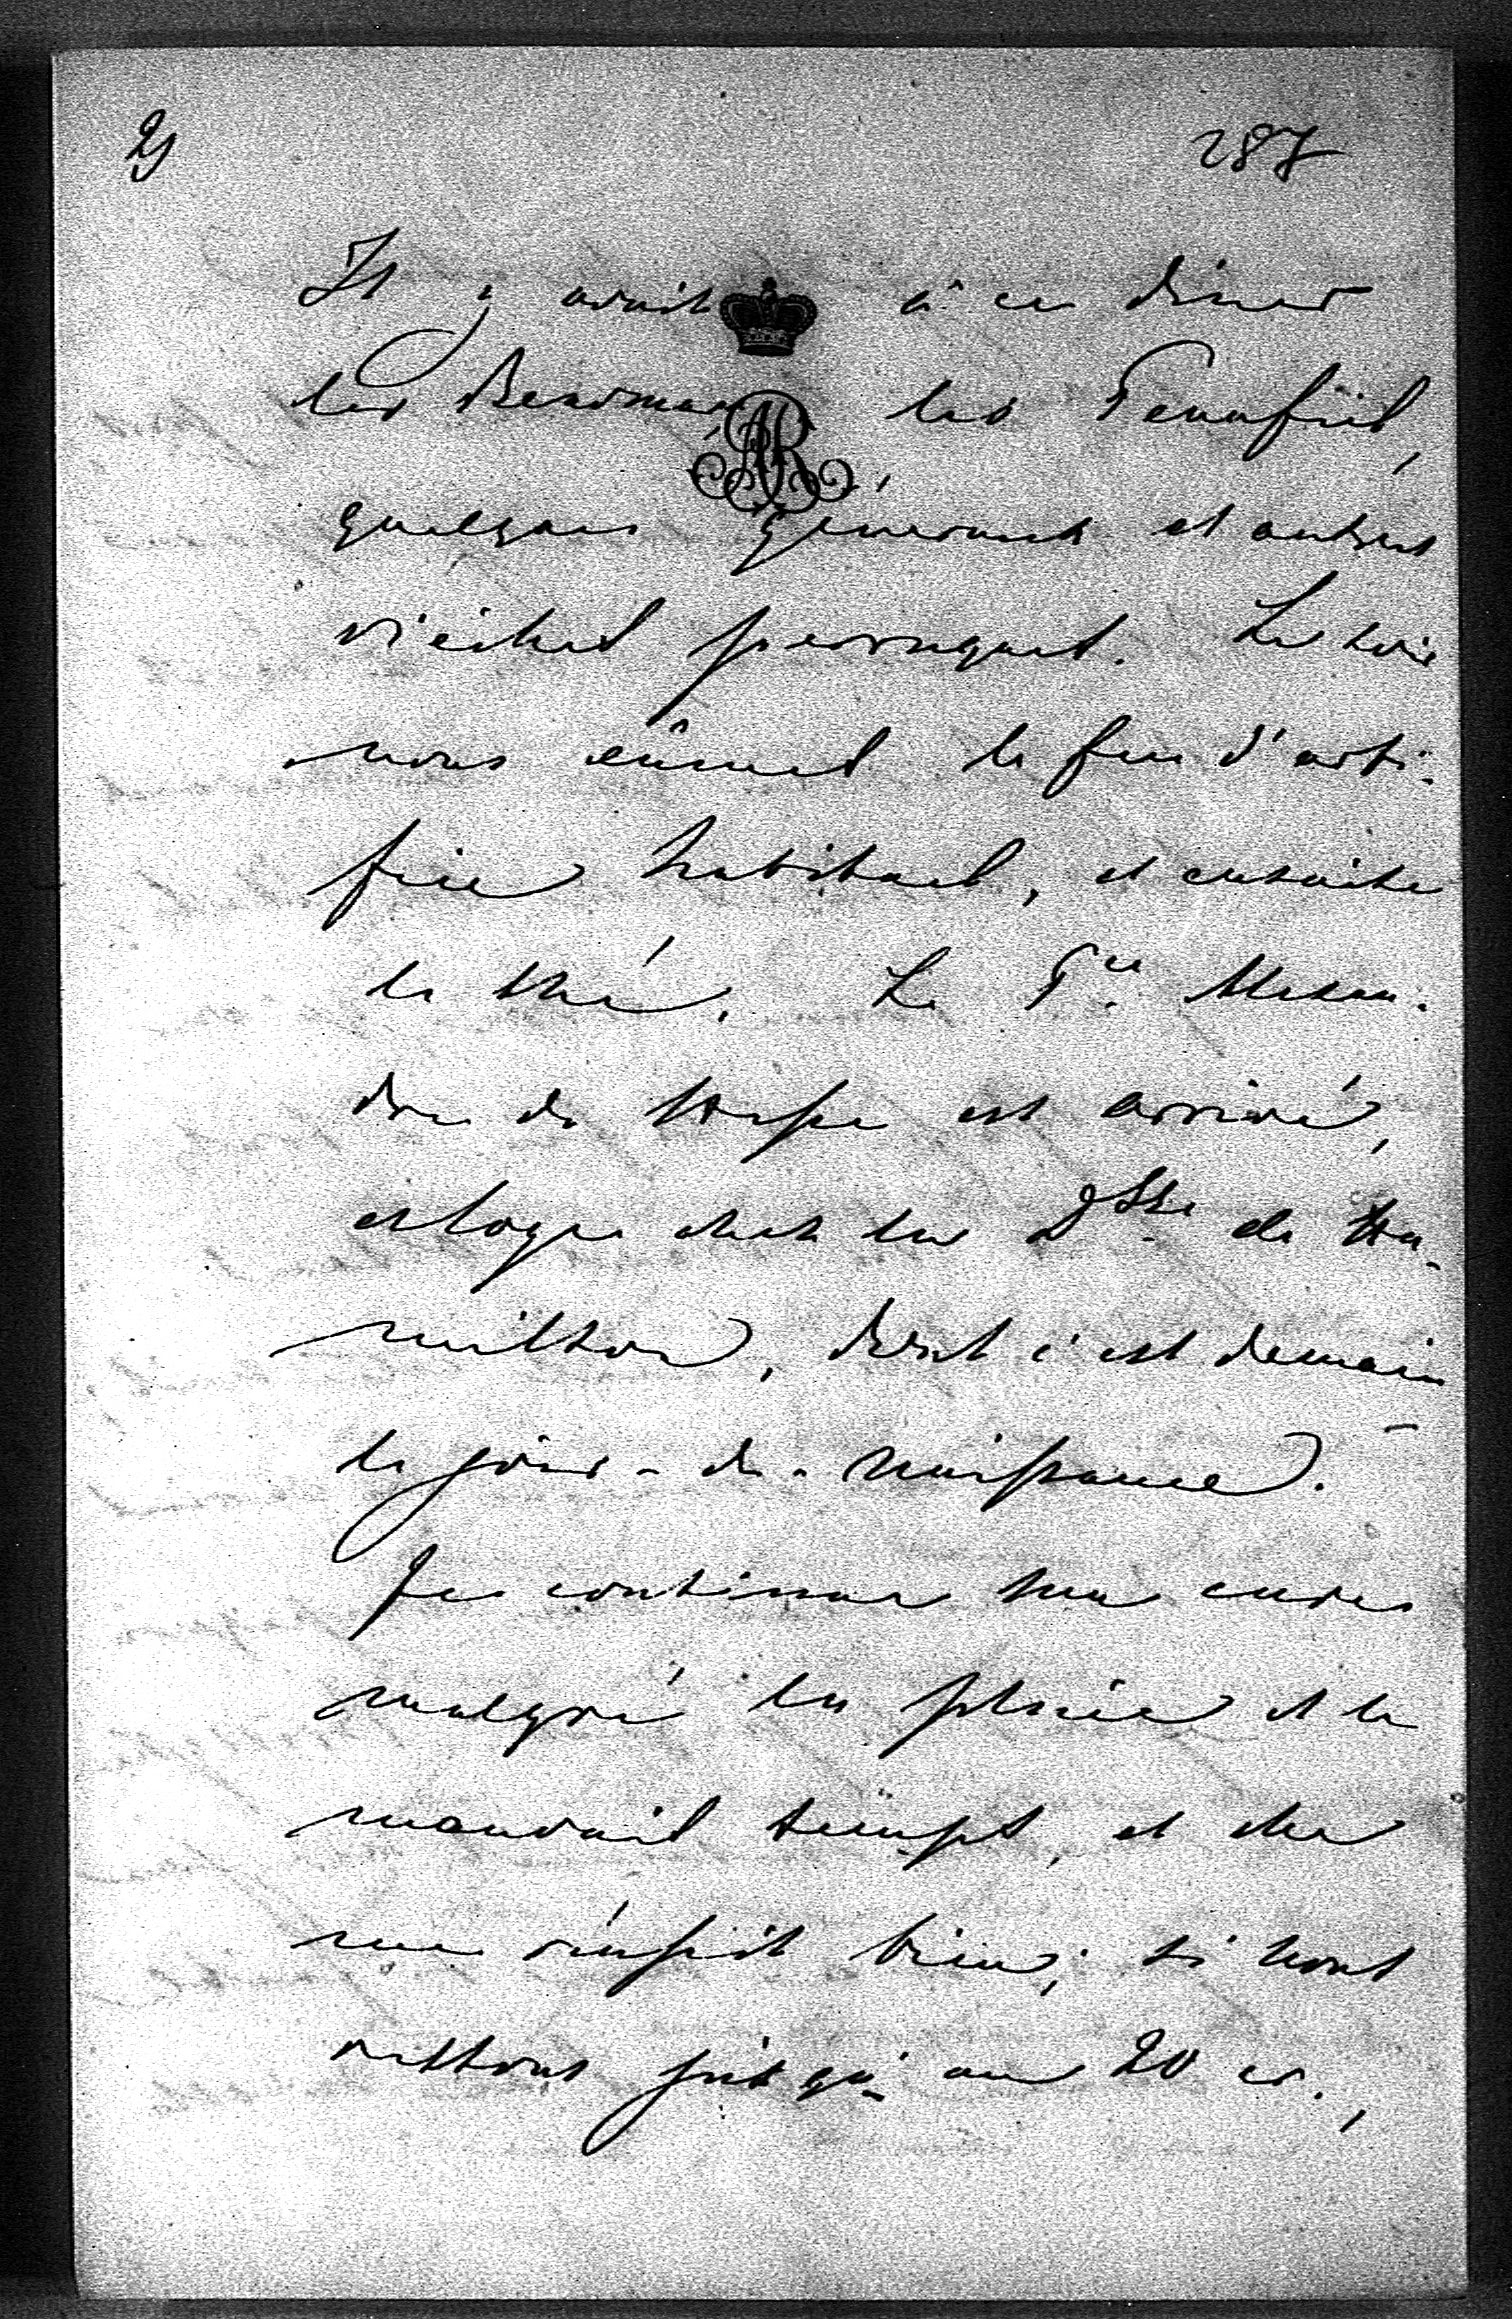 2) 287
Il y avait à ce diner
les les
quelques généraux et autres
vieilles perruques. Le soir
nous eûmes le feu d'arti-
fice habituel, et ensuite
le thé. Le Pce Alexan-
dre de Hesse est arrivé,
et loge chez la Dsse de Ha-
milton, dont c'est demain
le jour-de-naissance.
Je continue ma cure
malgré la pluie et le
mauvais temps, et elle
me réussit bien; si nous
restons jusqu'au 20 cr.,